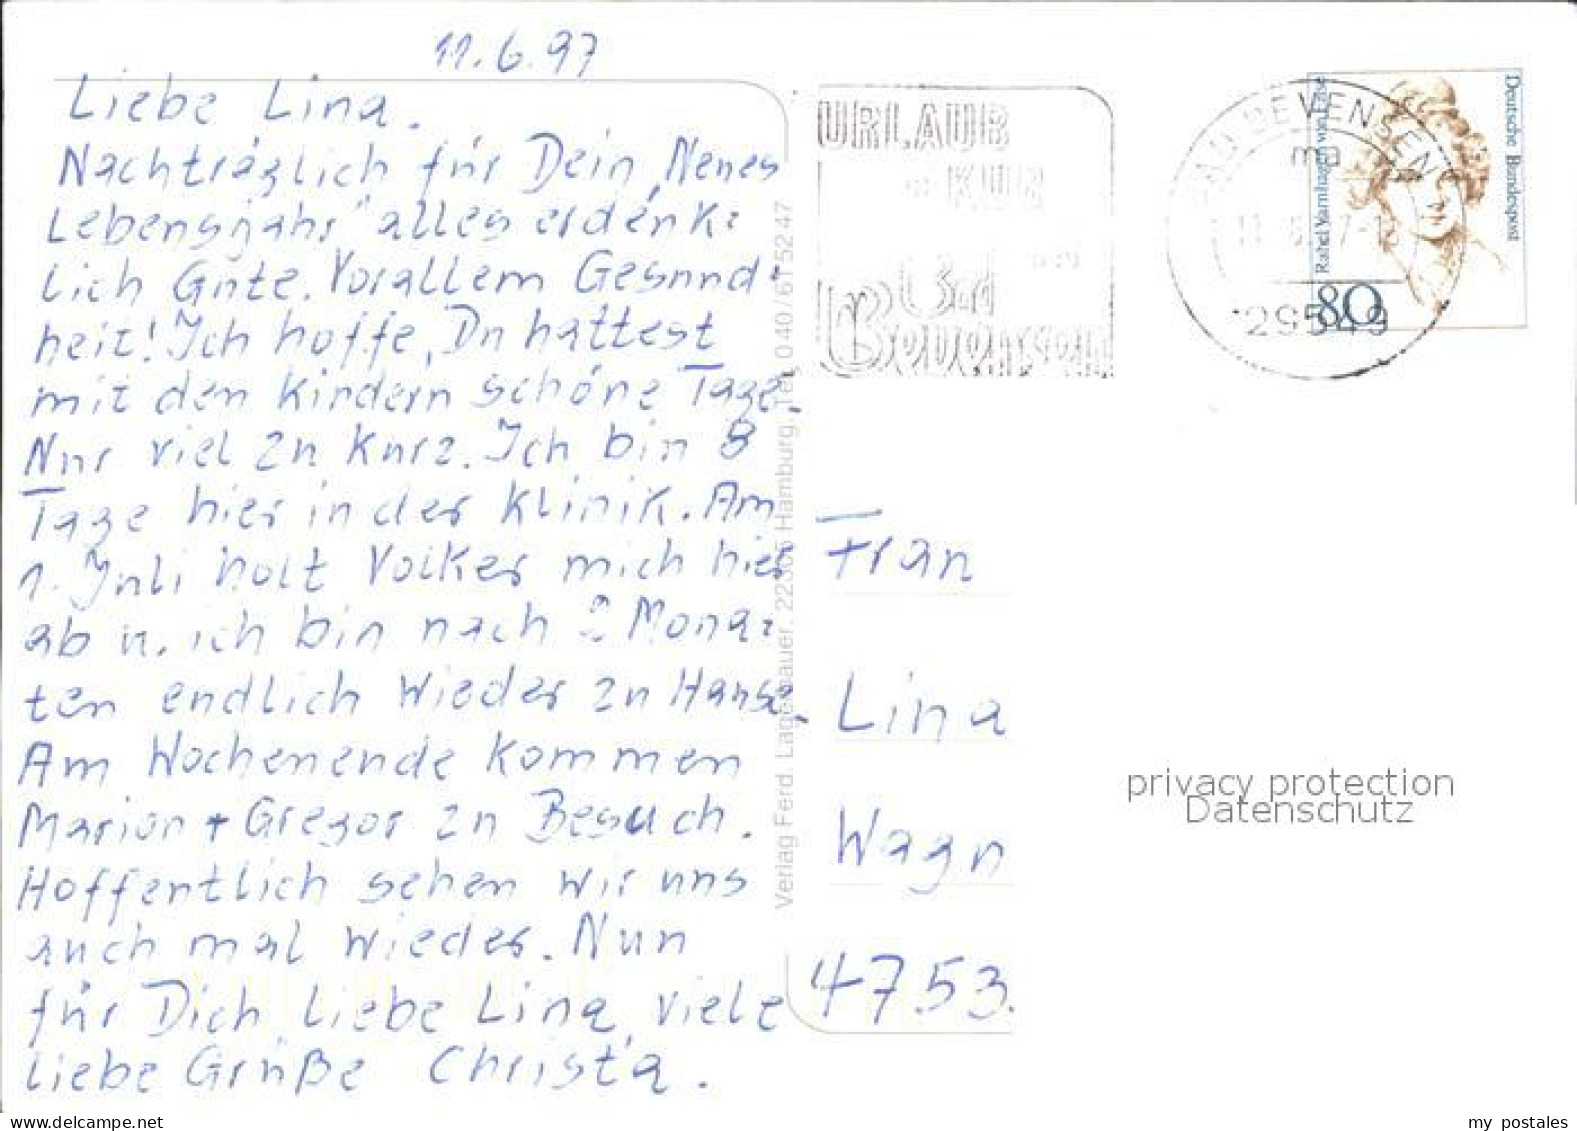 11.6.97
Liebe Lina.
Nachträglich für Dein „Neues
Lebensjahr" alles erdenk=
lich Gute. Vorallem Gesund=
heit! Ich hoffe, Du hattest
mit den Kindern schöne Tage.
Nur viel zu kurz. Ich bin 8
Tage hier in der Klinik. Am
1. Juli holt Volker mich hier
ab u. ich bin nach 2 Mona=
ten endlich wieder zu Hause.
Am Wochenende kommen
Marion + Gregor zu Besuch.
Hoffentlich sehen wir uns
auch mal wieder. Nun
für Dich, liebe Lina, viele
liebe Grüße Christa.
Verlag Ferd. Lagerbauer, 22305 Hamburg, Tel. 040/615247
URLAUB
KUR
Bad
Bevensen
BAD BEVENSEN
ma
29549
Deutsche Bundespost
Rahel Varnhagen von Ense
80
Frau
Lina
Wagn
4753
privacy protection
Datenschutz
my postales